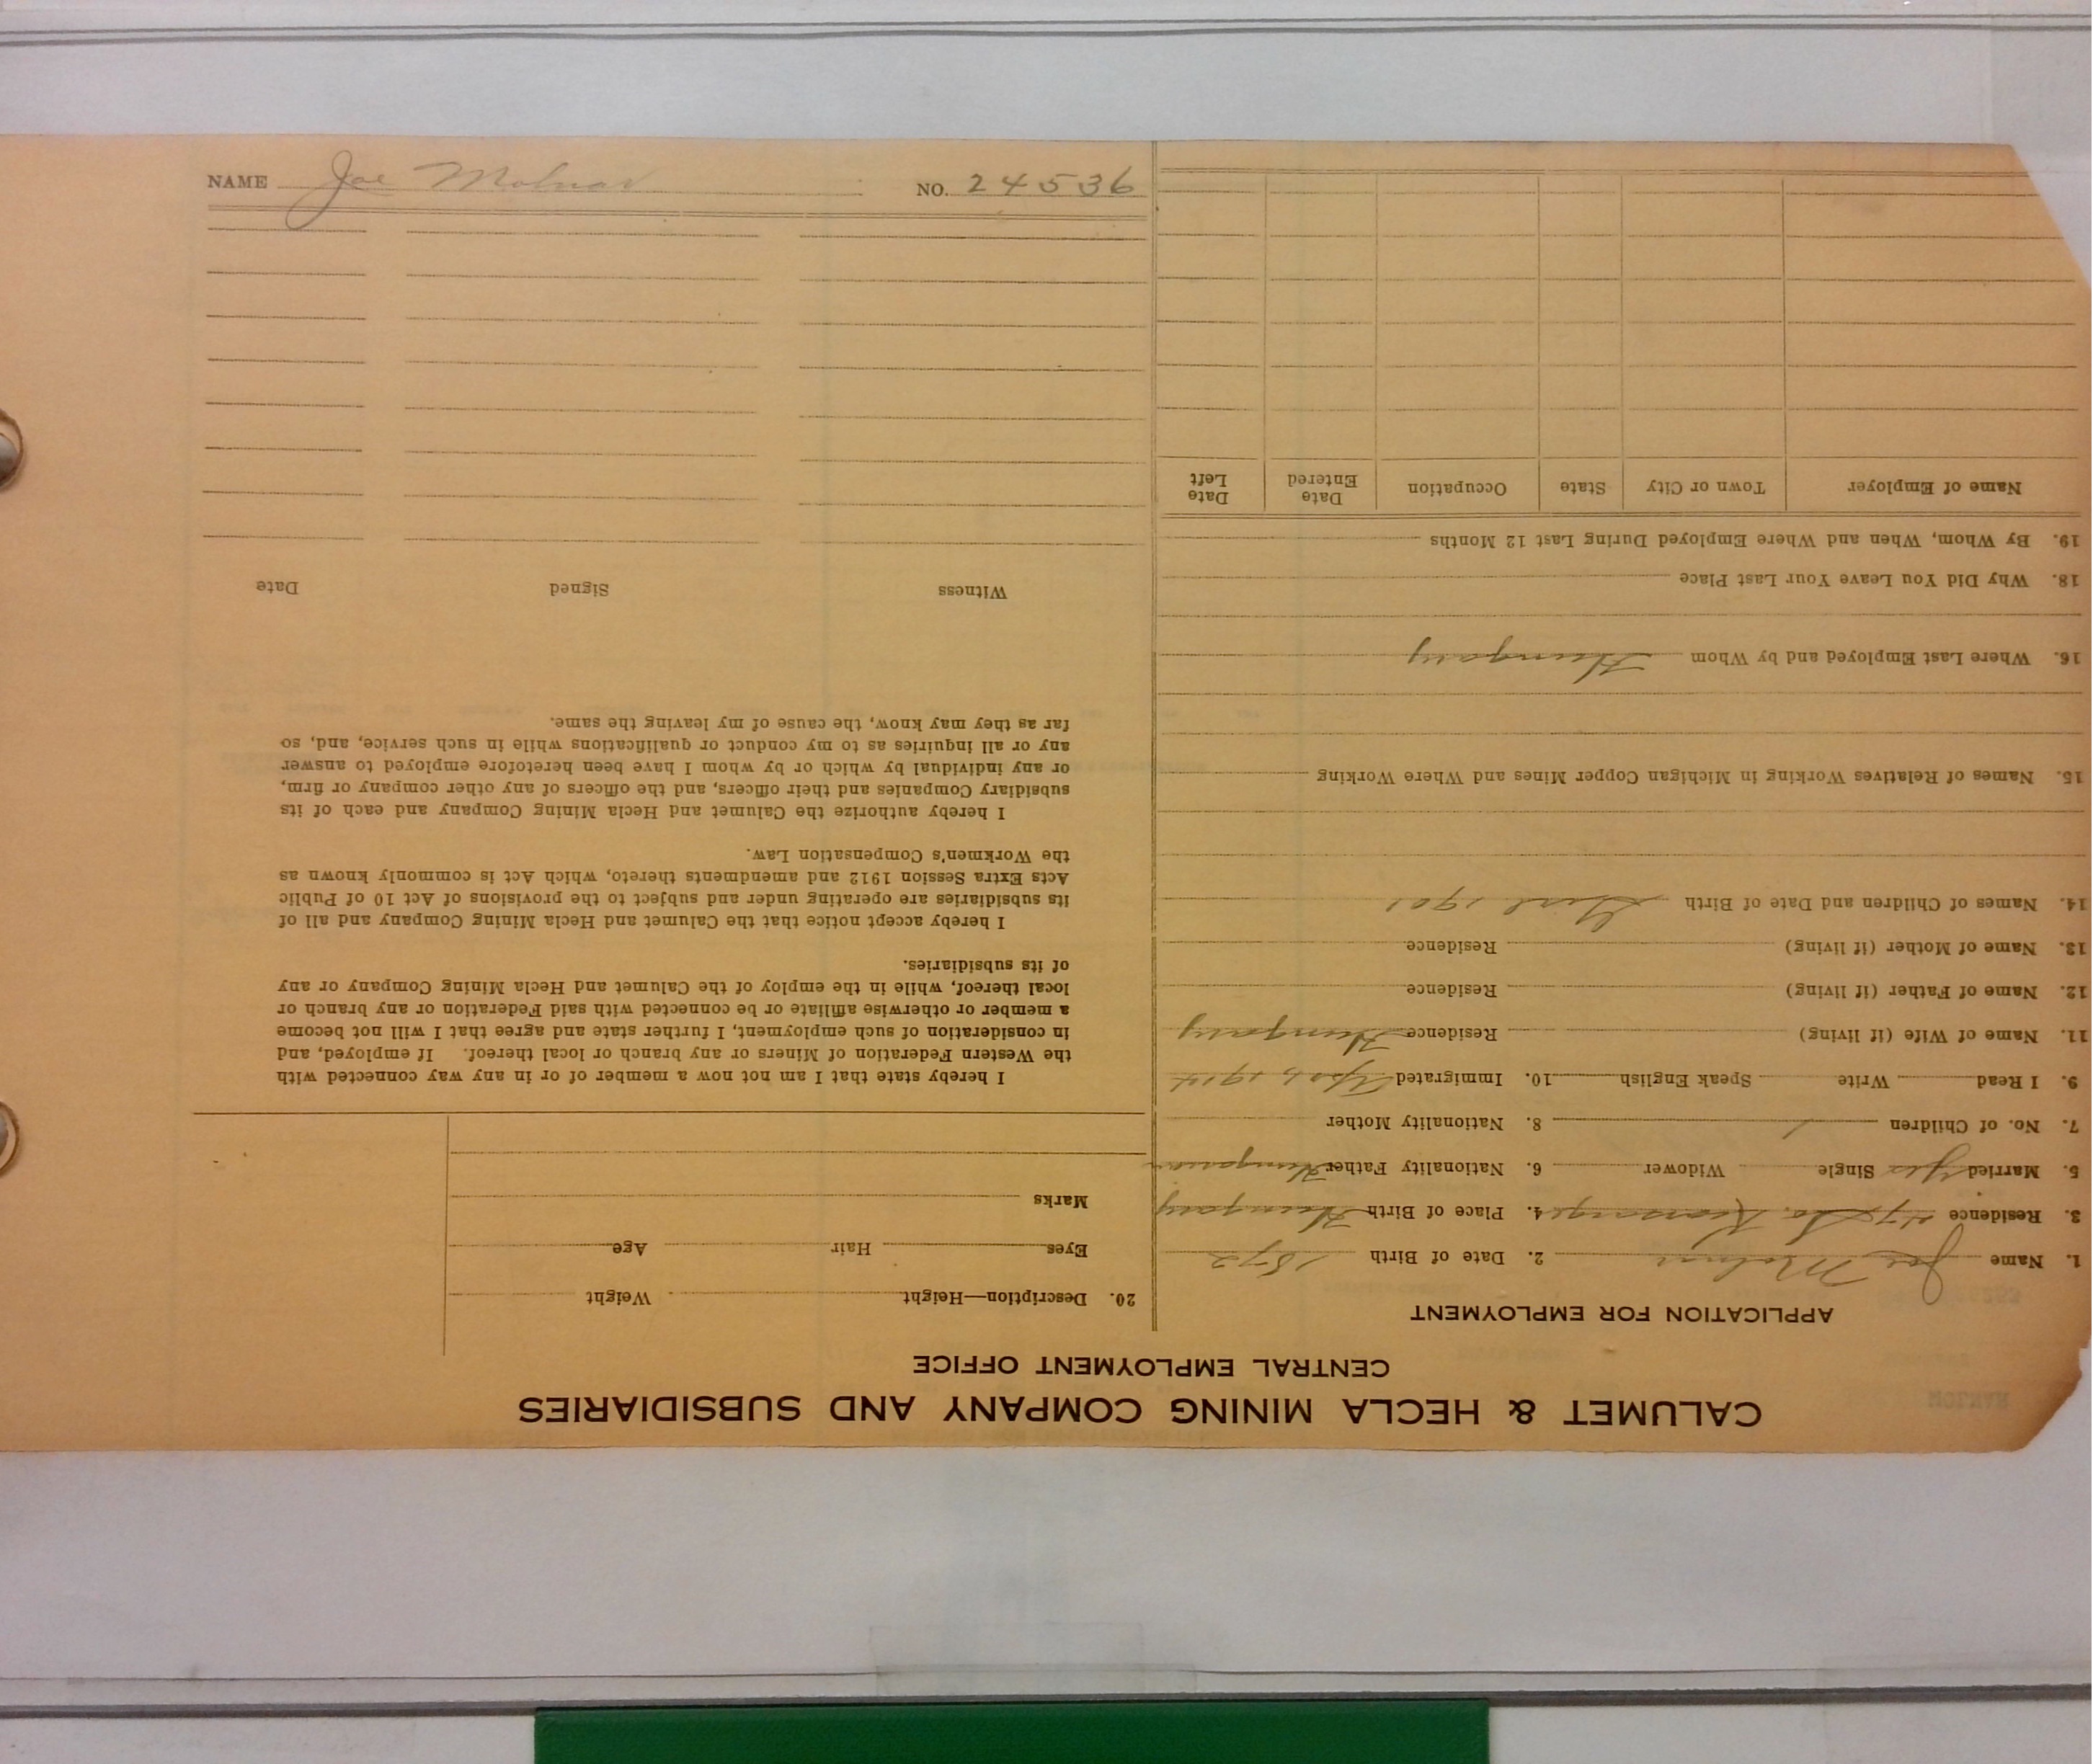 NAME Joe Molnar NO. 24536
CALUMET & HECLA MINING COMPANY AND SUBSIDIARIES
CENTRAL EMPLOYMENT OFFICE
APPLICATION FOR EMPLOYMENT
1. Name Joe Molnar 2. Date of Birth 1872
3. Residence 478 So. Kearsarge 4. Place of Birth Hungary
5. Married Yes Single Widower 6. Nationality Father Hungarian
7. No. of Children 1 8. Nationality Mother
9. I Read Write Speak English 10. Immigrated 1914
11. Name of Wife (if living) Residence Hungary
12. Name of Father (if living) Residence
13. Name of Mother (if living) Residence
14. Names of Children and Date of Birth Girl 1901
15. Names of Relatives Working in Michigan Copper Mines and Where Working
16. Where Last Employed and by Whom Hungary
18. Why Did You Leave Your Last Place
19. By Whom, When and Where Employed During Last 12 Months
Name of Employer Town or City State Occupation Date Entered Date Left
20. Description—Height Weight
Eyes Hair Age
Marks
I hereby state that I am not now a member of or in any way connected with
the Western Federation of Miners or any branch or local thereof. If employed, and
in consideration of such employment, I further state and agree that I will not become
a member or otherwise affiliate or be connected with said Federation or any branch or
local thereof, while in the employ of the Calumet and Hecla Mining Company or any
of its subsidiaries.
I hereby accept notice that the Calumet and Hecla Mining Company and all of
its subsidiaries are operating under and subject to the provisions of Act 10 of Public
Acts Extra Session 1912 and amendments thereto, which Act is commonly known as
the Workmen's Compensation Law.
I hereby authorize the Calumet and Hecla Mining Company and each of its
subsidiary Companies and their officers, and the officers of any other company or firm,
or any individual by which or by whom I have been heretofore employed to answer
any or all inquiries as to my conduct or qualifications while in such service, and, so
far as they may know, the cause of my leaving the same.
Witness Signed Date